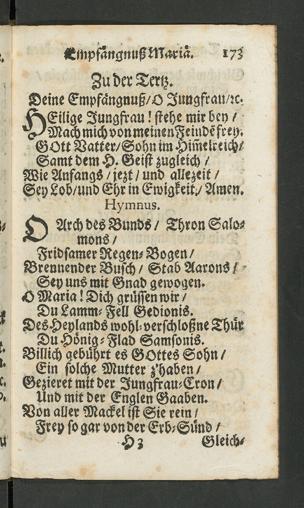 Empfängnuß Mariä. 173
Zu der Tertz.
Deine Empfängnuß/ O Jungfrau/ꝛc.
HEilige Jungfrau! stehe mir bey /
Mach mich von meinen Feindē frey.
GOtt Vatter/ Sohn im Him̄elreich/
Samt dem H. Geist zugleich /
Wie Anfangs / jezt / und allezeit /
Sey Lob/ und Ehr in Ewigkeit/ Amen.
Hymnus.
O Arch des Bunds / Thron Salo-
mons /
Fridsamer Regen-Bogen /
Brennender Busch / Stab Aarons /
Sey uns mit Gnad gewogen.
O Maria! Dich grüssen wir /
Du Lamm-Fell Gedionis.
Des Heylands wohl-verschloßne Thür
Du Hönig-Flad Samsonis.
Billich gebührt es GOttes Sohn /
Ein solche Mutter z'haben /
Gezieret mit der Jungfrau-Cron /
Und mit der Englen Gaaben.
Von aller Mackel ist Sie rein /
Frey so gar von der Erb-Sünd /
H 3 Gleich-